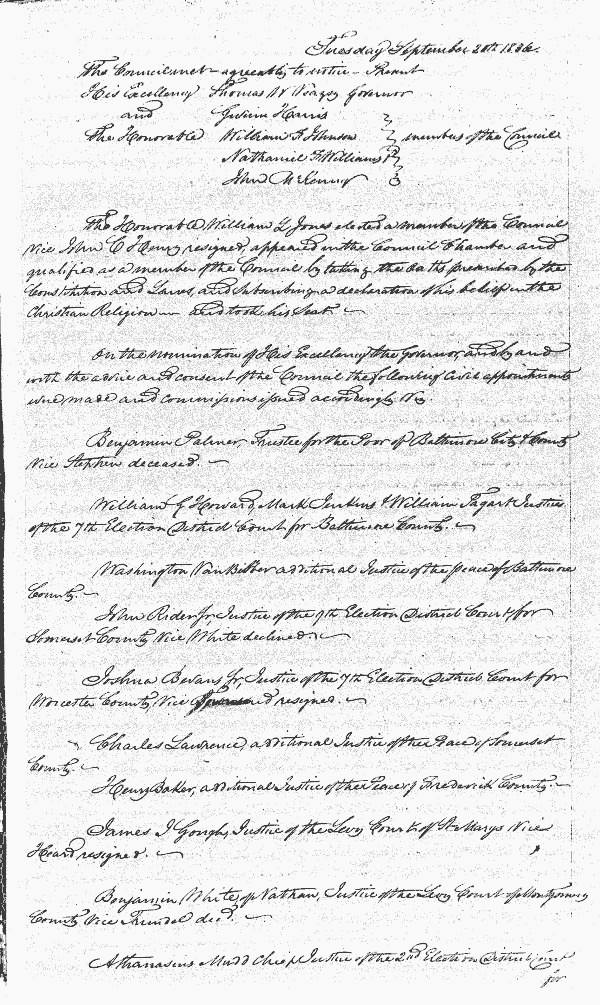 Tuesday September 20th 1836.
The Council met agreeably to notice - Present
His Excellency Thomas W Veazey Governor
and Gwinn Harris
The Honorable William F Johnson members of the Council
Nathaniel F Williams
John McKenney
The Honorable William G Jones elected a member of the Council
Vice John C Henry resigned, appeared in the Council Chamber and
qualified as a member of the Council by taking the oaths prescribed by the
Constitution and Laws, and subscribing a declaration of his belief in the
Christian Religion and took his Seat.
On the nomination of His Excellency the Governor, and by and
with the advice and consent of the Council the following Civil appointments
were made and commissions issued accordingly Viz
Benjamin Palmer Trustee for the Poor of Baltimore City & County
Vice Stephen deceased.
William G Howard, Mark Jenkins & William Tagart Justices
of the 7th Election District Court for Baltimore County.
Washington VanBibber additional Justice of the peace of Baltimore
County.
John Rider Jr Justice of the 9th Election District Court for
Somerset County Vice White declined.
Joshua Bevans Jr Justice of the 7th Election District Court for
Worcester County Vice resigned.
Charles Lawrence, additional Justice of the Peace of Somerset
County.
Henry Baker, additional Justice of the Peace of Frederick County.
James J Gough, Justice of the Levy Court of St Marys Vice
Heard resigned.
Benjamin White, of Nathan, Justice of the Levy Court of Montgomery
County Vice Trundel died.
Athanasius Mudd Chief Justice of the 2nd Election District Court
for